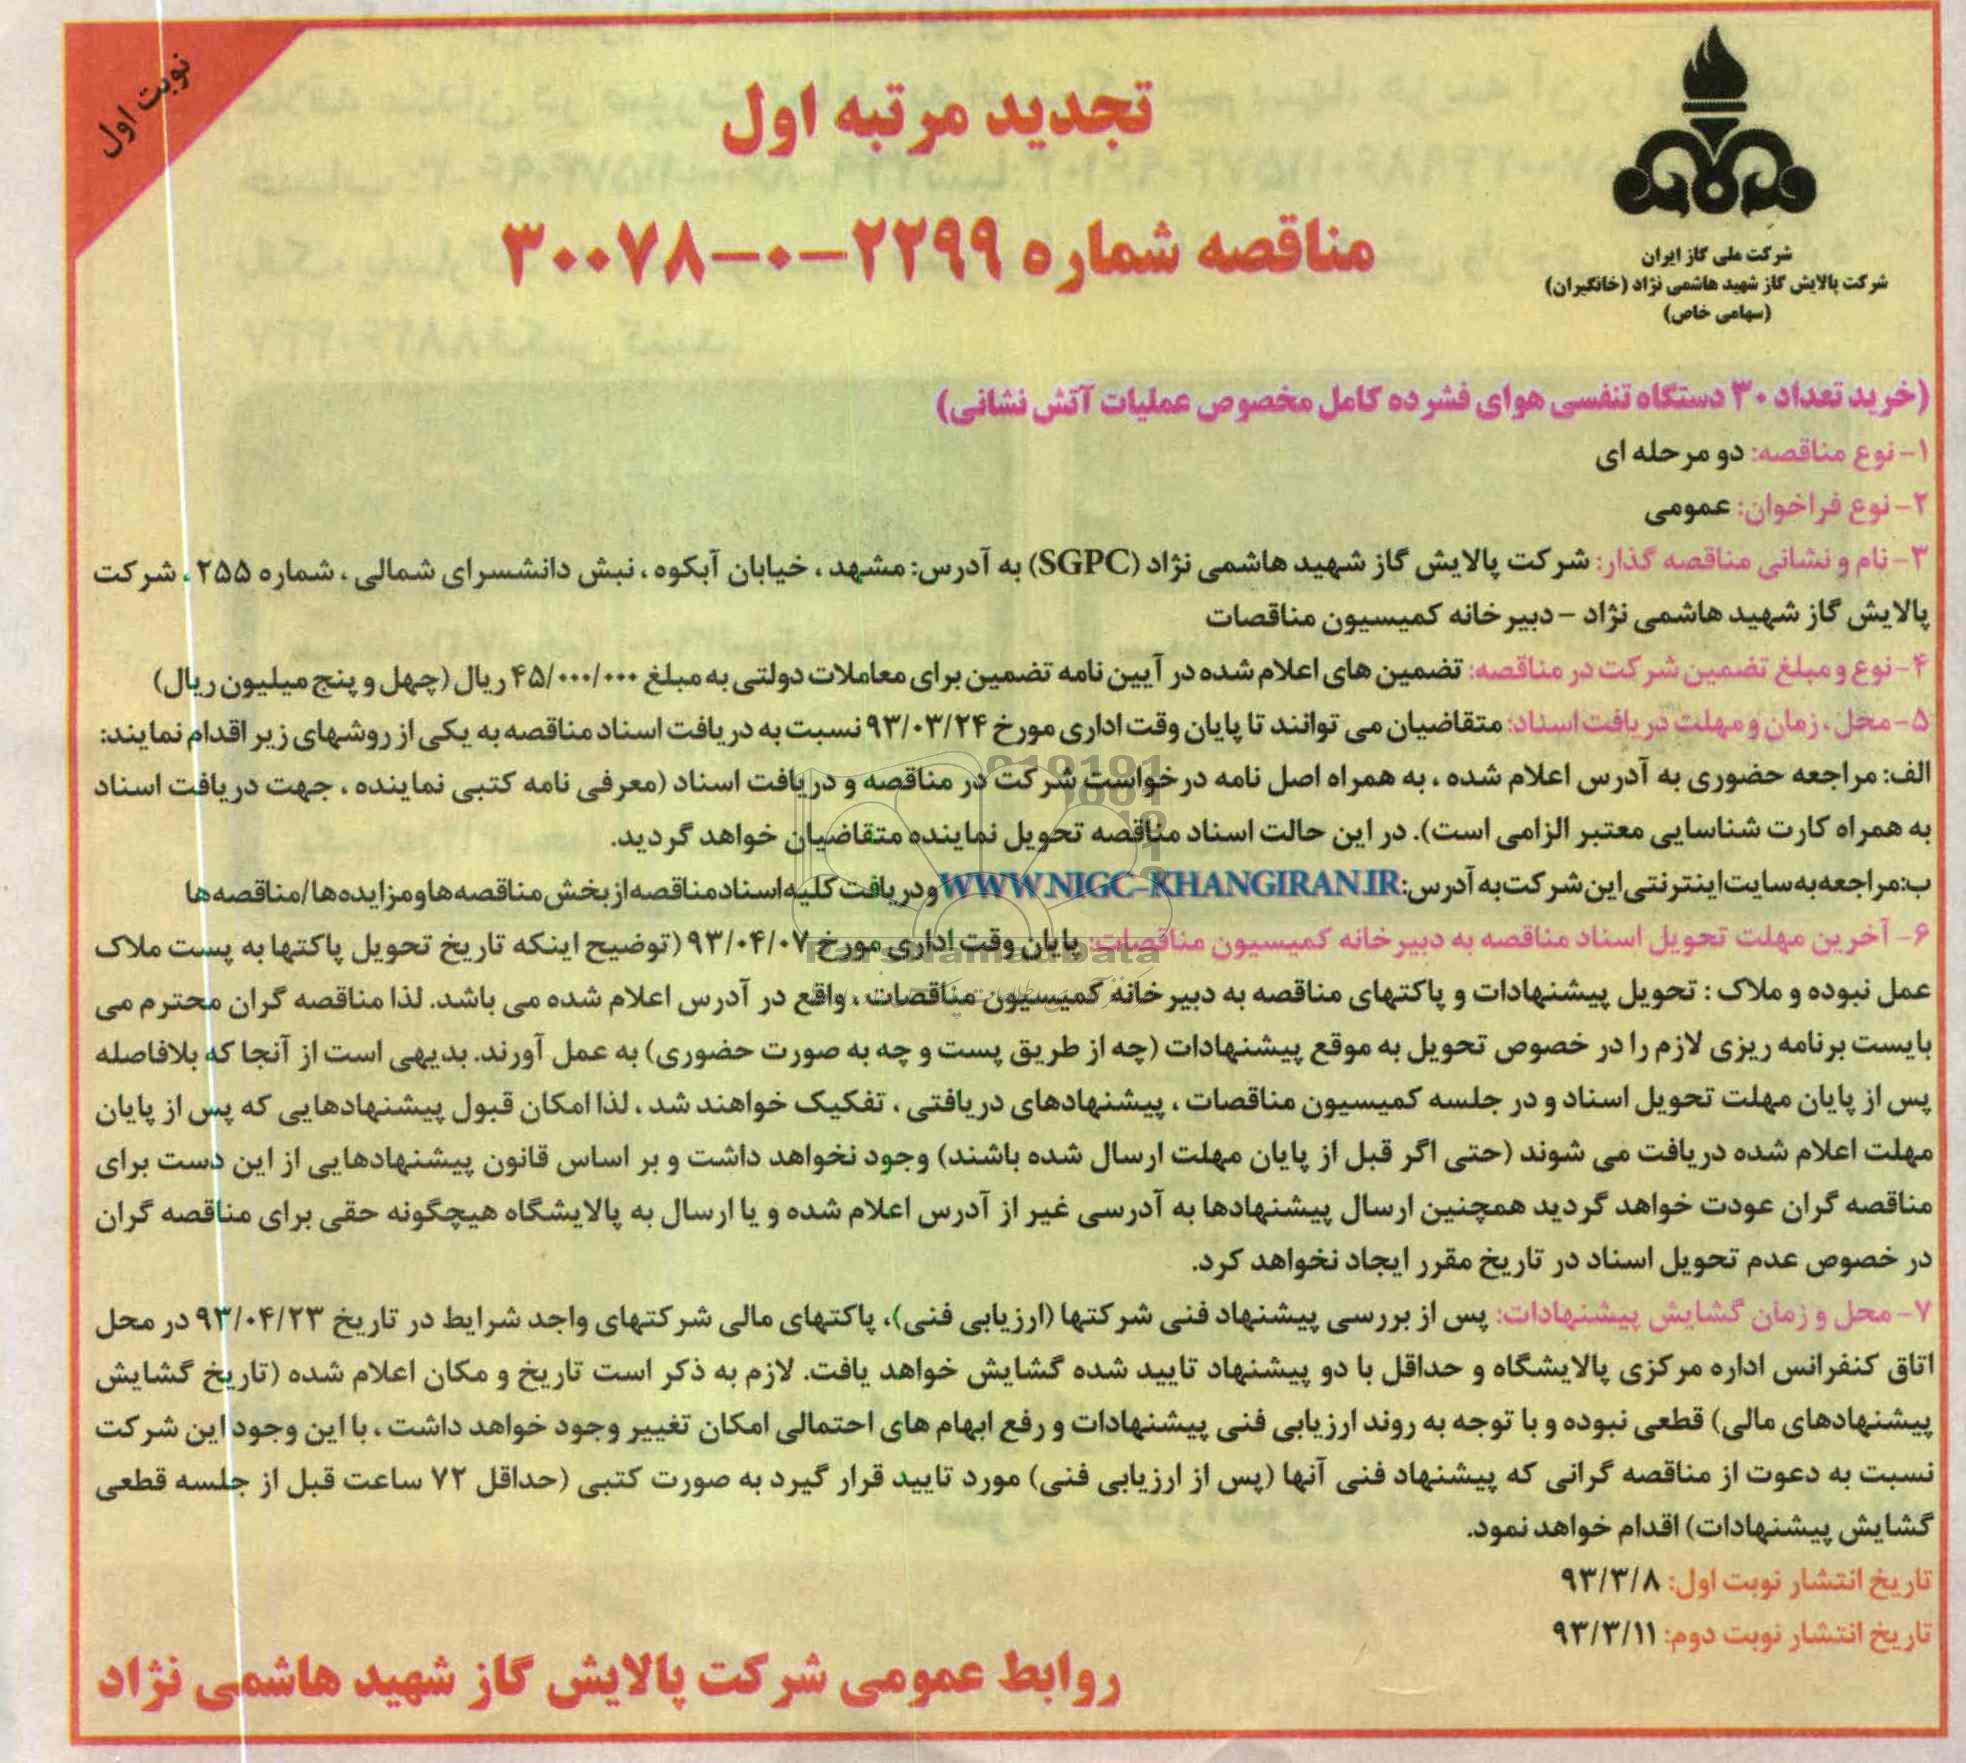 نوبت اول
تجدید مرتبه اول
مناقصه شماره ۲۲۹۹-۰-۳۰۰۷۸
شرکت ملی گاز ایران
شرکت پالایش گاز شهید هاشمی نژاد (خانگیران)
(سهامی خاص)
(خرید تعداد ۳۰ دستگاه تنفسی هوای فشرده کامل مخصوص عملیات آتش نشانی)
۱- نوع مناقصه: دو مرحله ای
۲- نوع فراخوان: عمومی
۳- نام و نشانی مناقصه گذار: شرکت پالایش گاز شهید هاشمی نژاد (SGPC) به آدرس: مشهد ، خیابان آبکوه ، نبش دانشسرای شمالی ، شماره ۲۵۵ ، شرکت
پالایش گاز شهید هاشمی نژاد – دبیرخانه کمیسیون مناقصات
۴- نوع و مبلغ تضمین شرکت در مناقصه: تضمین های اعلام شده در آیین نامه تضمین برای معاملات دولتی به مبلغ ۴۵/۰۰۰/۰۰۰ ریال (چهل و پنج میلیون ریال)
۵- محل ، زمان و مهلت دریافت اسناد: متقاضیان می توانند تا پایان وقت اداری مورخ ۹۳/۰۳/۲۴ نسبت به دریافت اسناد مناقصه به یکی از روشهای زیر اقدام نمایند:
الف: مراجعه حضوری به آدرس اعلام شده ، به همراه اصل نامه درخواست شرکت در مناقصه و دریافت اسناد (معرفی نامه کتبی نماینده ، جهت دریافت اسناد
به همراه کارت شناسایی معتبر الزامی است). در این حالت اسناد مناقصه تحویل نماینده متقاضیان خواهد گردید.
ب: مراجعه به سایت اینترنتی این شرکت به آدرس: WWW.NIGC-KHANGIRAN.IR و دریافت کلیه اسناد مناقصه از بخش مناقصه ها و مزایده ها/مناقصه ها
۶- آخرین مهلت تحویل اسناد مناقصه به دبیرخانه کمیسیون مناقصات: پایان وقت اداری مورخ ۹۳/۰۴/۰۷ (توضیح اینکه تاریخ تحویل پاکتها به پست ملاک
عمل نبوده و ملاک : تحویل پیشنهادات و پاکتهای مناقصه به دبیرخانه کمیسیون مناقصات ، واقع در آدرس اعلام شده می باشد. لذا مناقصه گران محترم می
بایست برنامه ریزی لازم را در خصوص تحویل به موقع پیشنهادات (چه از طریق پست و چه به صورت حضوری) به عمل آورند. بدیهی است از آنجا که بلافاصله
پس از پایان مهلت تحویل اسناد و در جلسه کمیسیون مناقصات ، پیشنهادهای دریافتی ، تفکیک خواهند شد ، لذا امکان قبول پیشنهادهایی که پس از پایان
مهلت اعلام شده دریافت می شوند (حتی اگر قبل از پایان مهلت ارسال شده باشند) وجود نخواهد داشت و بر اساس قانون پیشنهادهایی از این دست برای
مناقصه گران عودت خواهد گردید همچنین ارسال پیشنهادها به آدرسی غیر از آدرس اعلام شده و یا ارسال به پالایشگاه هیچگونه حقی برای مناقصه گران
در خصوص عدم تحویل اسناد در تاریخ مقرر ایجاد نخواهد کرد.
۷- محل و زمان گشایش پیشنهادات: پس از بررسی پیشنهاد فنی شرکتها (ارزیابی فنی)، پاکتهای مالی شرکتهای واجد شرایط در تاریخ ۹۳/۰۴/۲۳ در محل
اتاق کنفرانس اداره مرکزی پالایشگاه و حداقل با دو پیشنهاد تایید شده گشایش خواهد یافت. لازم به ذکر است تاریخ و مکان اعلام شده (تاریخ گشایش
پیشنهادهای مالی) قطعی نبوده و با توجه به روند ارزیابی فنی پیشنهادات و رفع ابهام های احتمالی امکان تغییر وجود خواهد داشت ، با این وجود این شرکت
نسبت به دعوت از مناقصه گرانی که پیشنهاد فنی آنها (پس از ارزیابی فنی) مورد تایید قرار گیرد به صورت کتبی (حداقل ۷۲ ساعت قبل از جلسه قطعی
گشایش پیشنهادات) اقدام خواهد نمود.
تاریخ انتشار نوبت اول: ۹۳/۳/۸
تاریخ انتشار نوبت دوم: ۹۳/۳/۱۱
روابط عمومی شرکت پالایش گاز شهید هاشمی نژاد